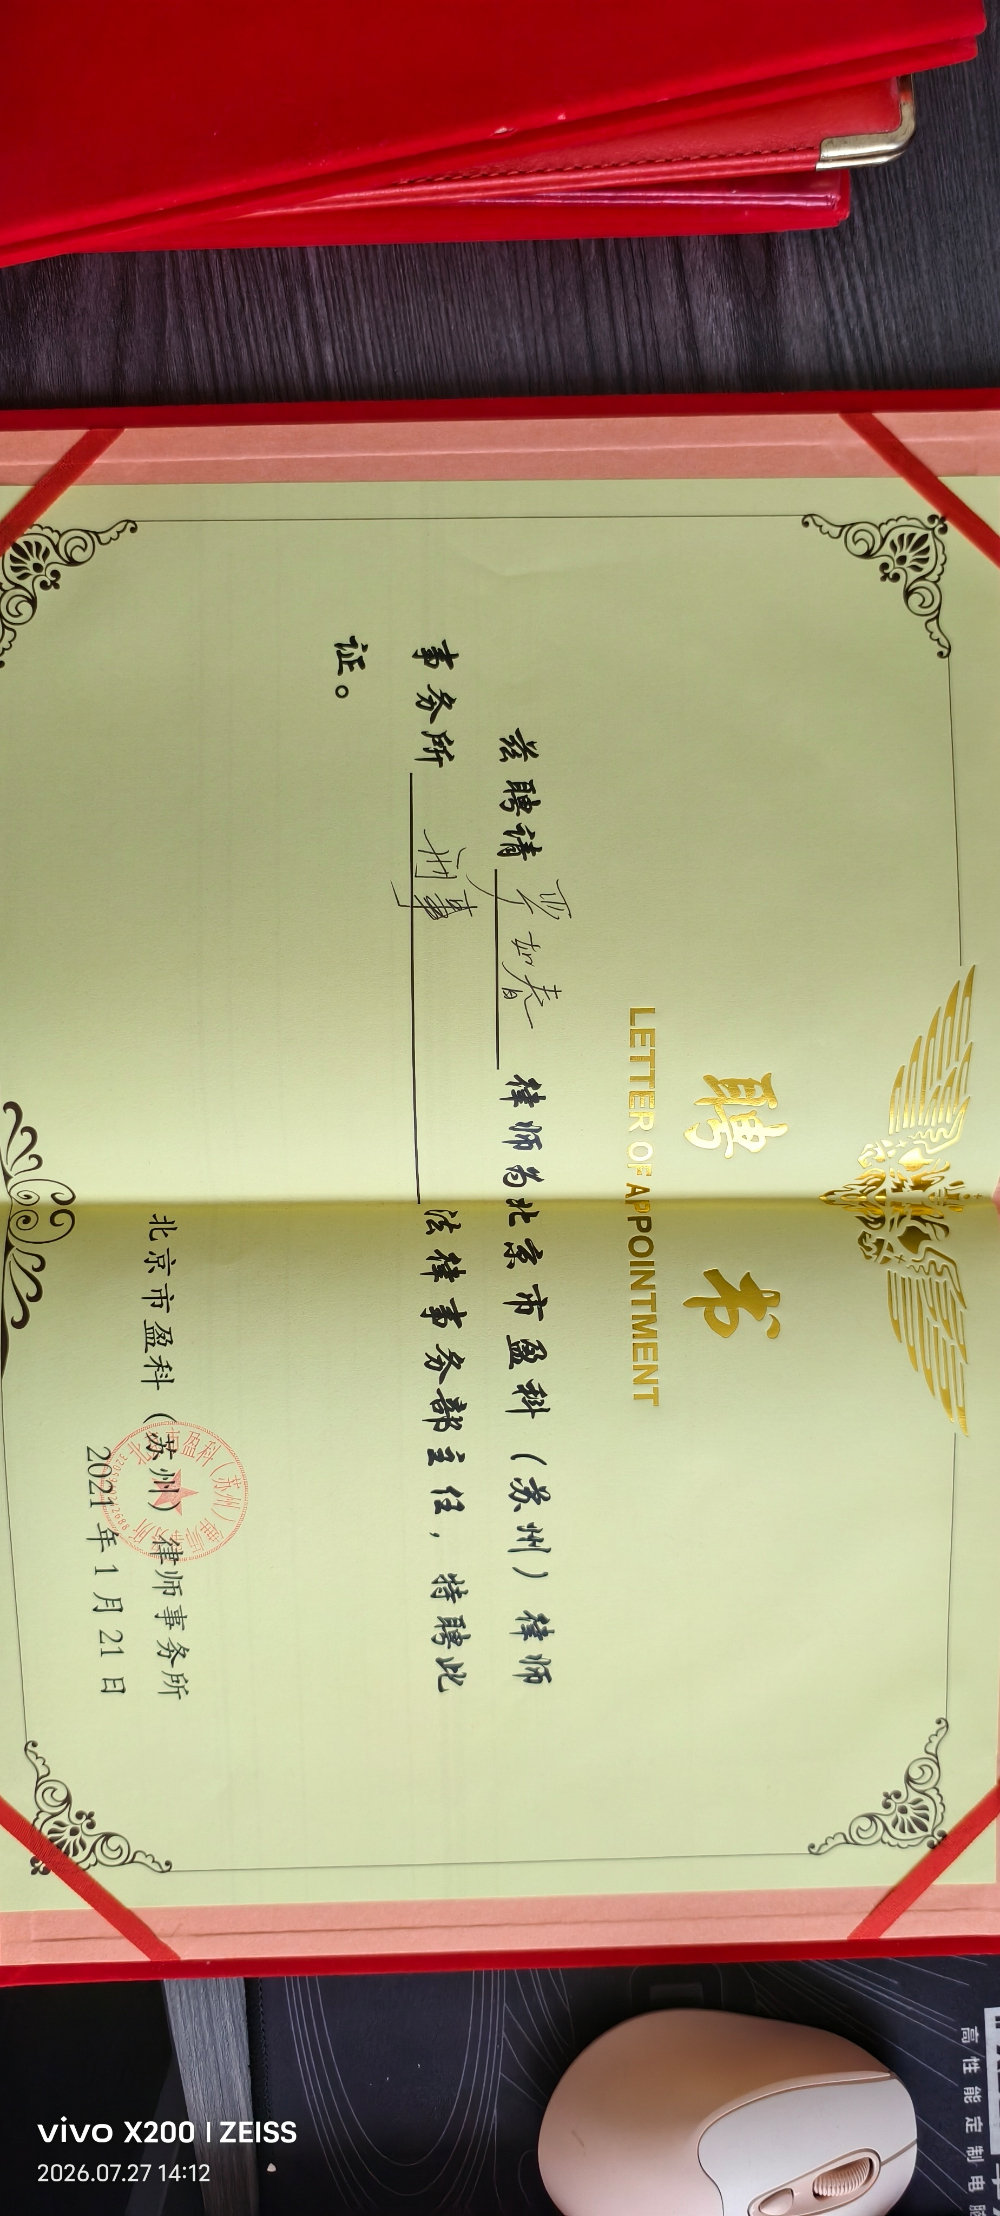 聘书
LETTER OF APPOINTMENT
兹聘请 罗如春 律师为北京市盈科（苏州）律师
事务所 刑事 法律事务部主任，特聘此
证。
北京市盈科（苏州）律师事务所
2021年1月21日
高性能定制电脑
vivo X200 | ZEISS
2026.07.27 14:12